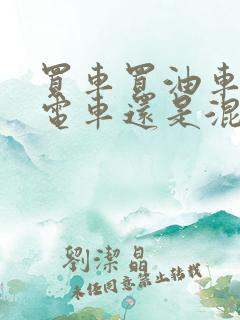 買車買油車
電車還是混
劉潔晶
未任同意禁止转载